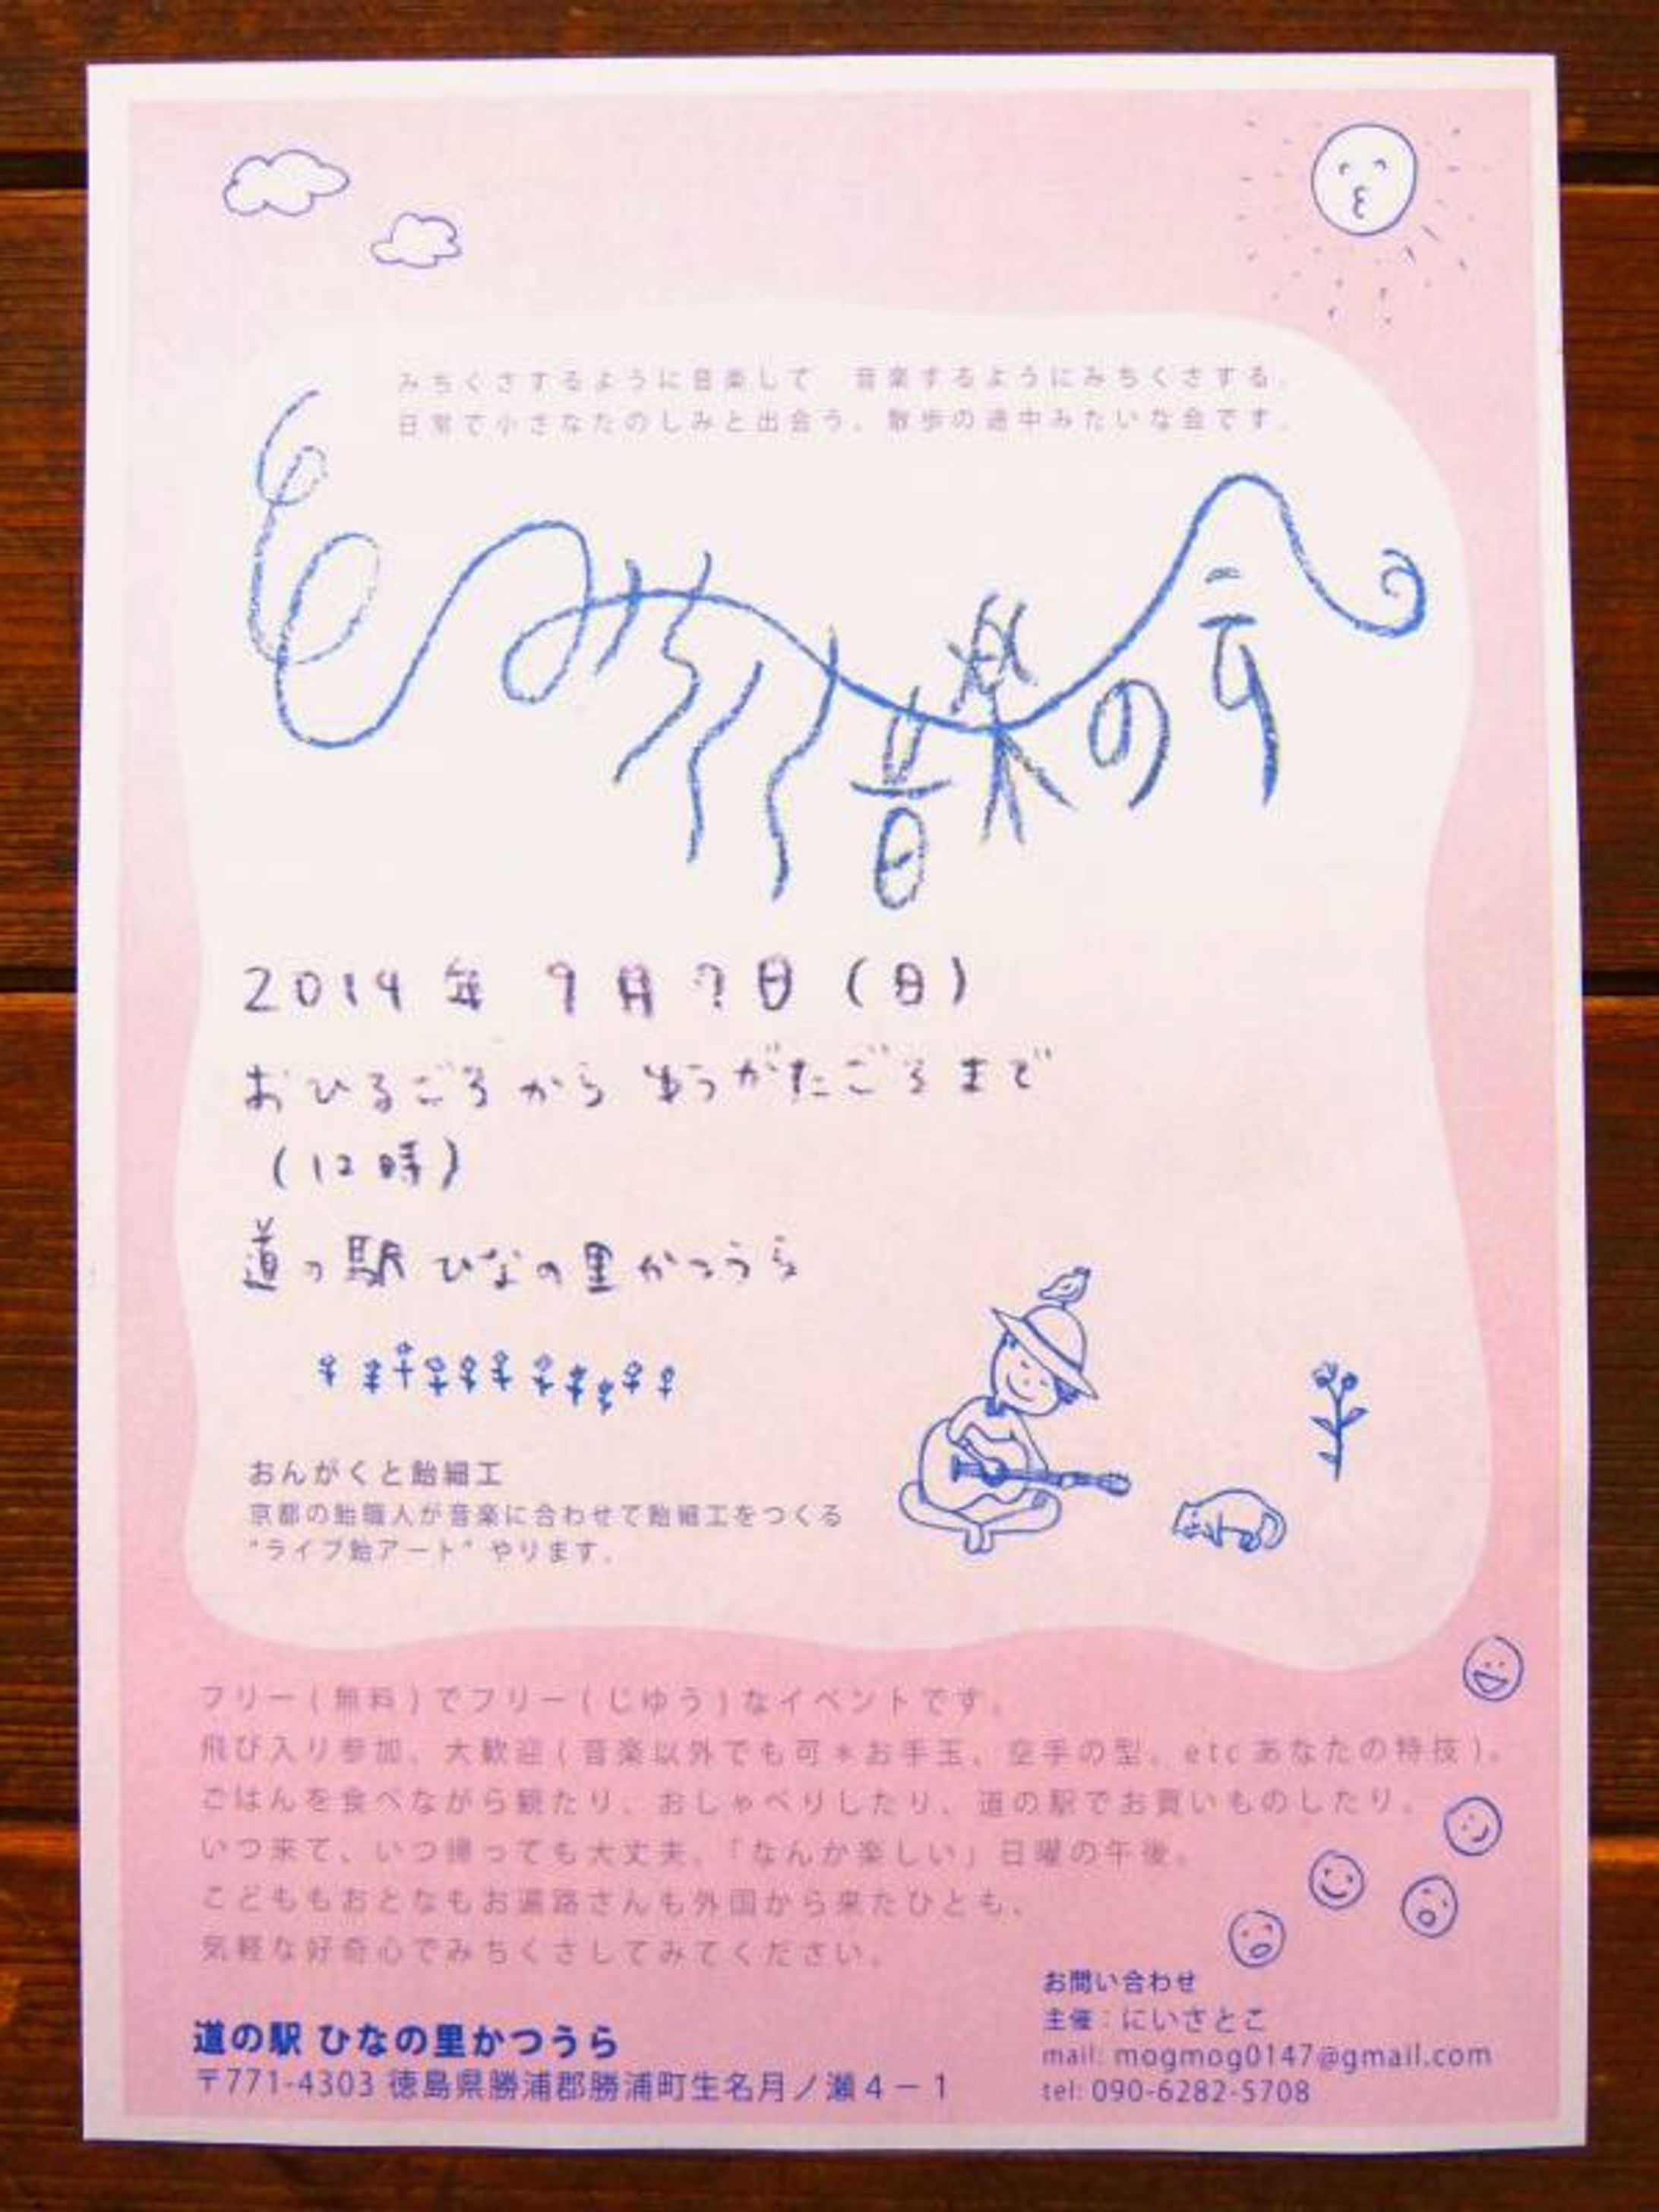 みちくさするように音楽して　音楽するようにみちくさする。
日常で小さなたのしみと出会う。散歩の途中みたいな会です。
音楽の会
2014年 9月7日(日)
おひるごろから ゆうがたごろまで
(12時)
道の駅 ひなの里かつうら
おんがくと飴細工
京都の飴職人が音楽に合わせて飴細工をつくる
"ライブ飴アート" やります。
フリー(無料)でフリー(じゆう)なイベントです。
飛び入り参加、大歓迎(音楽以外でも可＊お手玉、空手の型、etcあなたの特技)。
ごはんを食べながら観たり、おしゃべりしたり、道の駅でお買いものしたり。
いつ来て、いつ帰っても大丈夫。「なんか楽しい」日曜の午後。
こどももおとなもお遍路さんも外国から来たひとも、
気軽な好奇心でみちくさしてみてください。
道の駅 ひなの里かつうら
〒771-4303 徳島県勝浦郡勝浦町生名月ノ瀬4－1
お問い合わせ
主催：にいさとこ
mail: mogmog0147@gmail.com
tel: 090-6282-5708